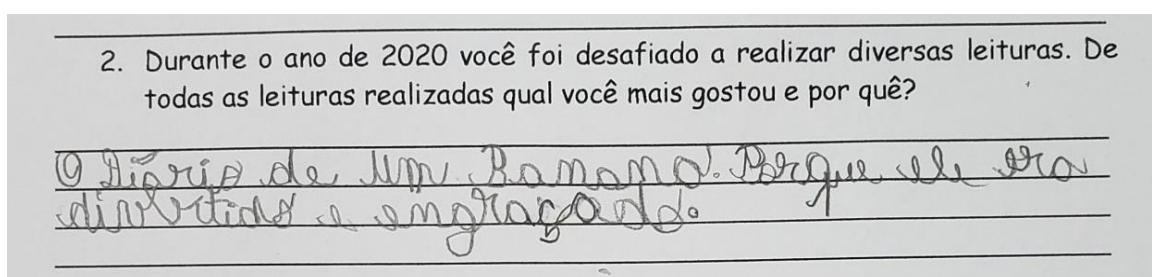 2. Durante o ano de 2020 você foi desafiado a realizar diversas leituras. De
todas as leituras realizadas qual você mais gostou e por quê?
O Diário de Um Banana. Porque ele era
divertido e engraçado.